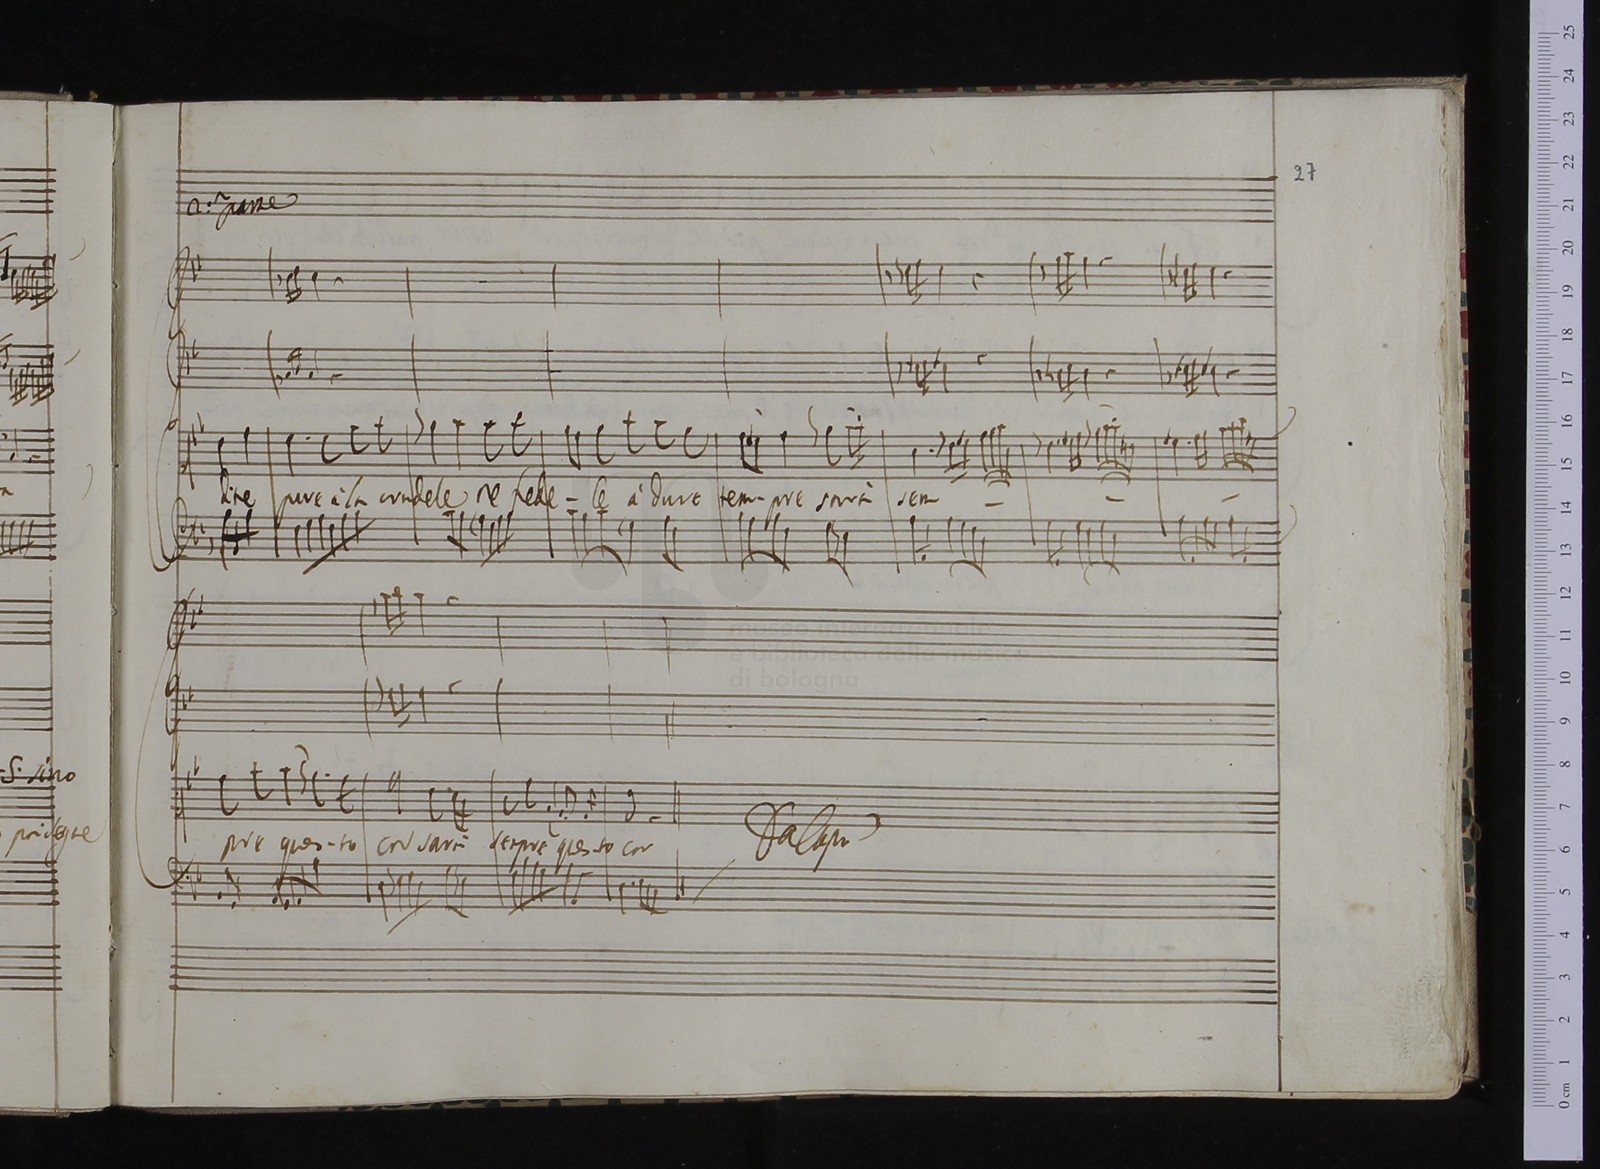 27
a: 2 parte
dite pure à la crudele se fede - le à dure tem - pre sarà sem - - -
S. sino
pre ques - to cor sarà sempre ques - to cor
Da Capo
museo internazionale
e biblioteca della musica
di bologna
25
24
23
22
21
20
19
18
17
16
15
14
13
12
11
10
9
8
7
6
5
4
3
2
1
0 cm